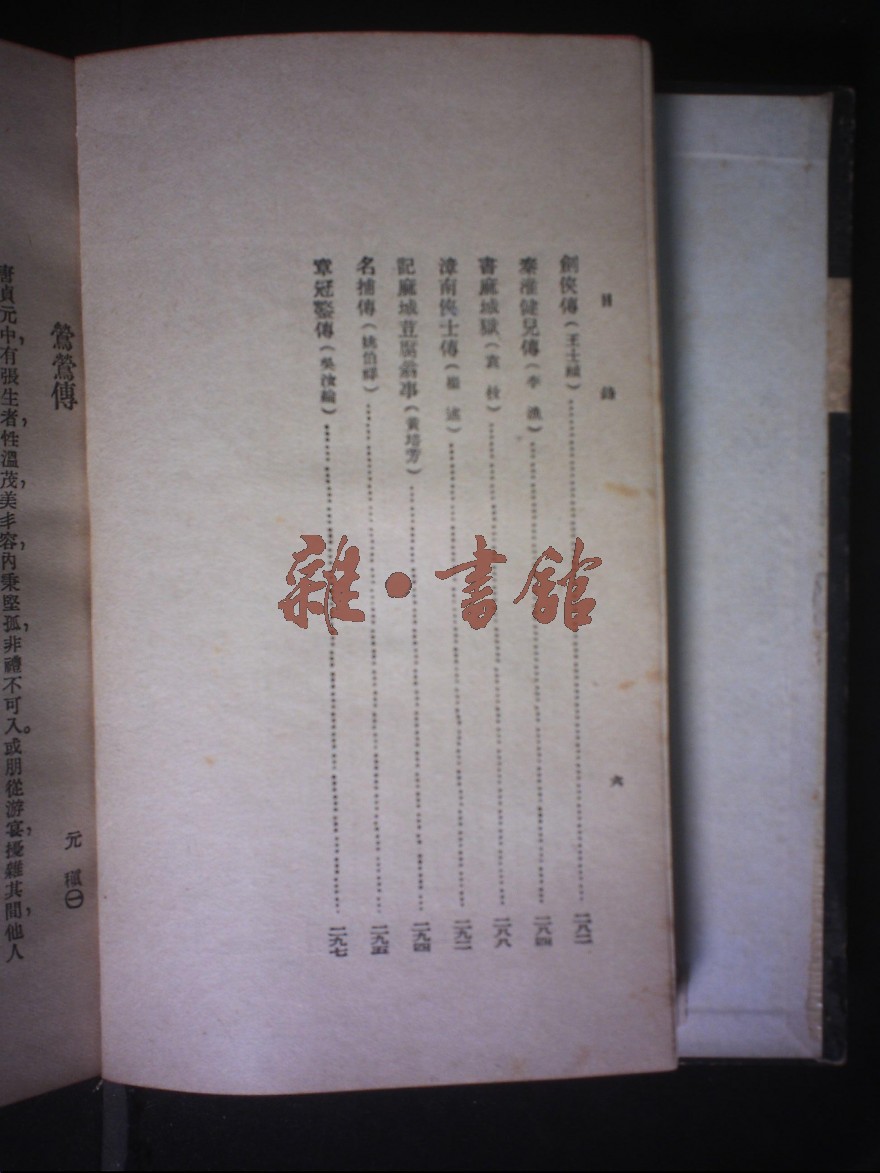 目錄 六
劍俠傳(王士禛)……二八二
秦淮健兒傳(李漁)……二八四
書麻城獄(袁枚)……二八八
漳南俠士傳(崔述)……二九二
記麻城荳腐翁事(黃培芳)……二九四
名捕傳(姚伯祥)……二九五
章冠鰲傳(吳汝綸)……二九七
鶯鶯傳
元稹㊀
唐貞元中,有張生者,性溫茂,美丰容,內秉堅孤,非禮不可入。或朋從游宴,擾雜其間,他人
雜·書館